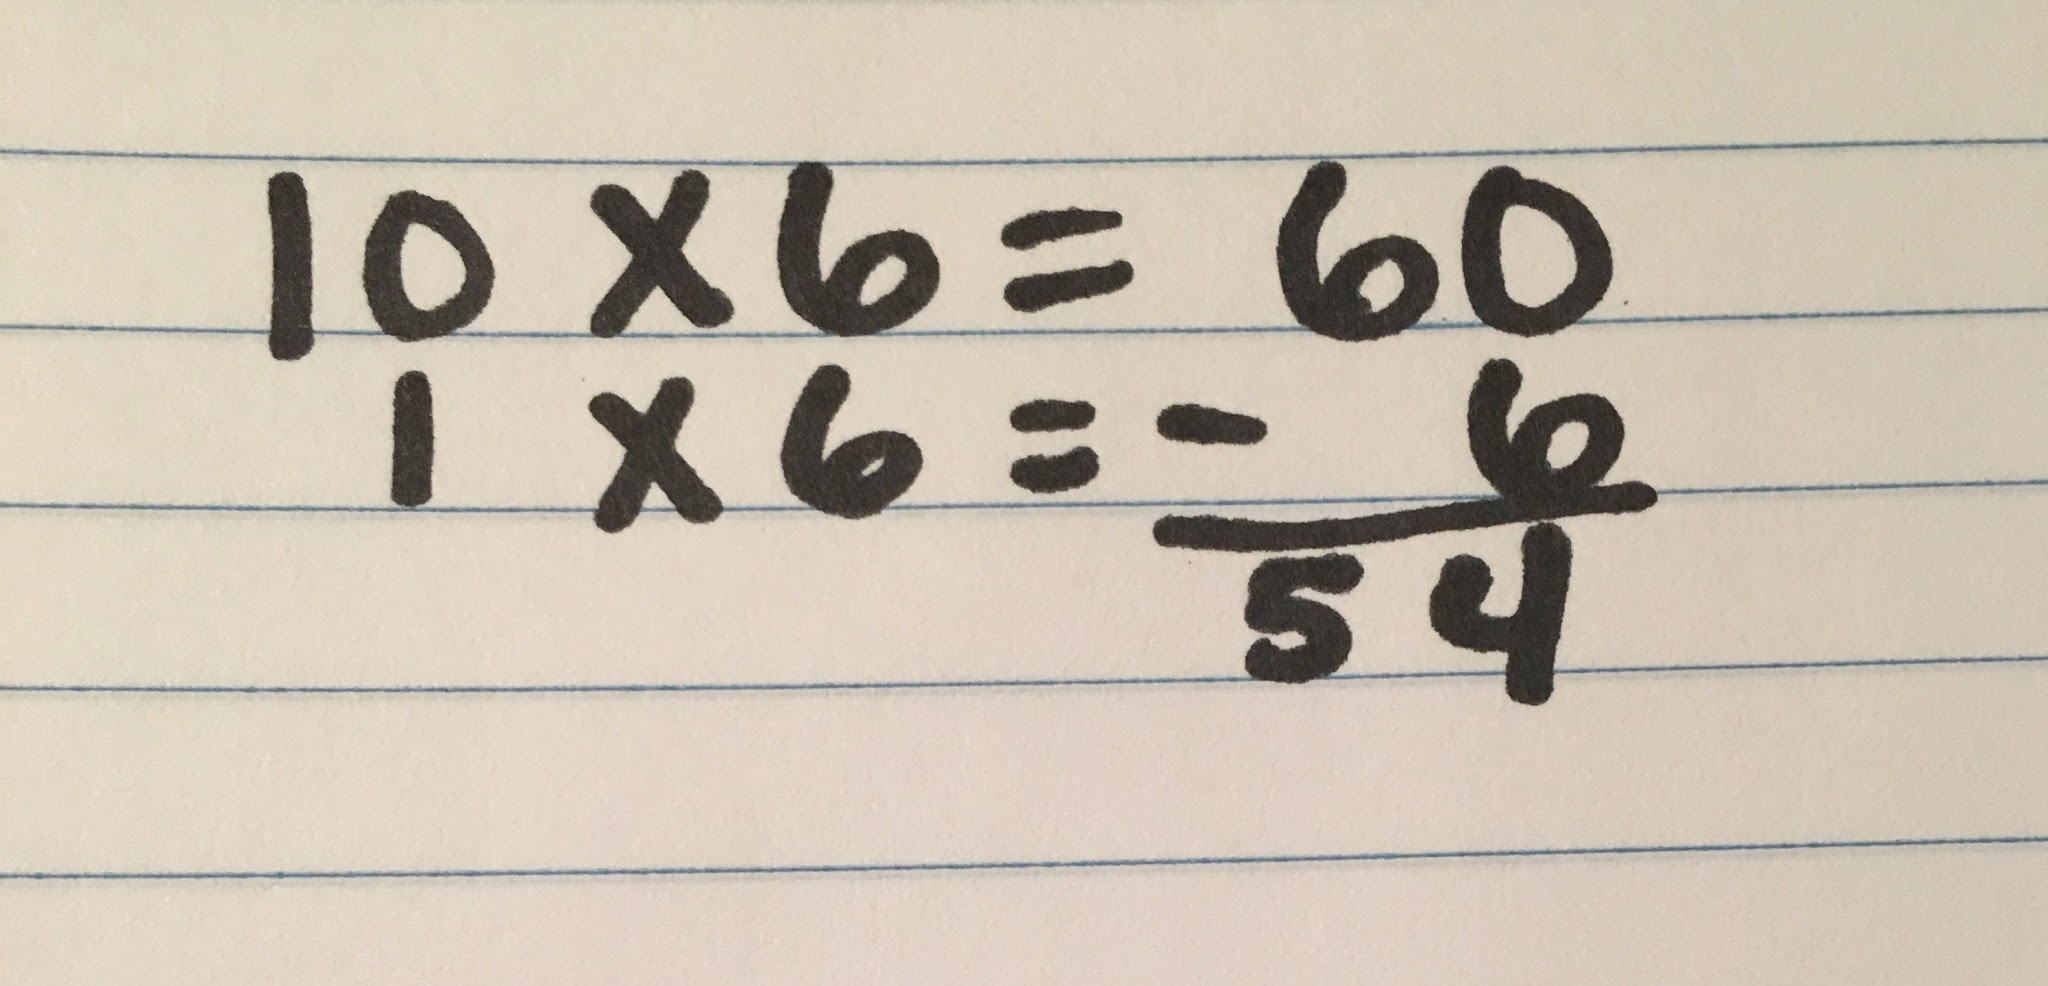 10 x 6 = 60
1 x 6 = - 6
54